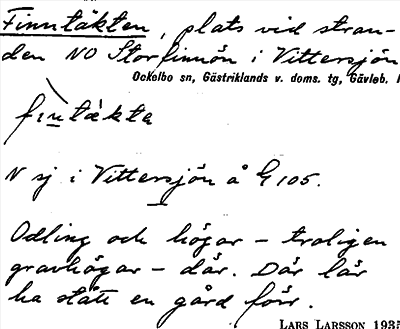 Finntäkten, plats vid stran-
den NO Storfinnön i Vittersjön
Ockelbo sn, Gästriklands v. doms. tg, Gävleb. l
fintäkta
N sj i Vittersjön å G 105.
Odling och högar – troligen
gravhögar – där. Där lär
ha stått en gård förr.
LARS LARSSON 1935